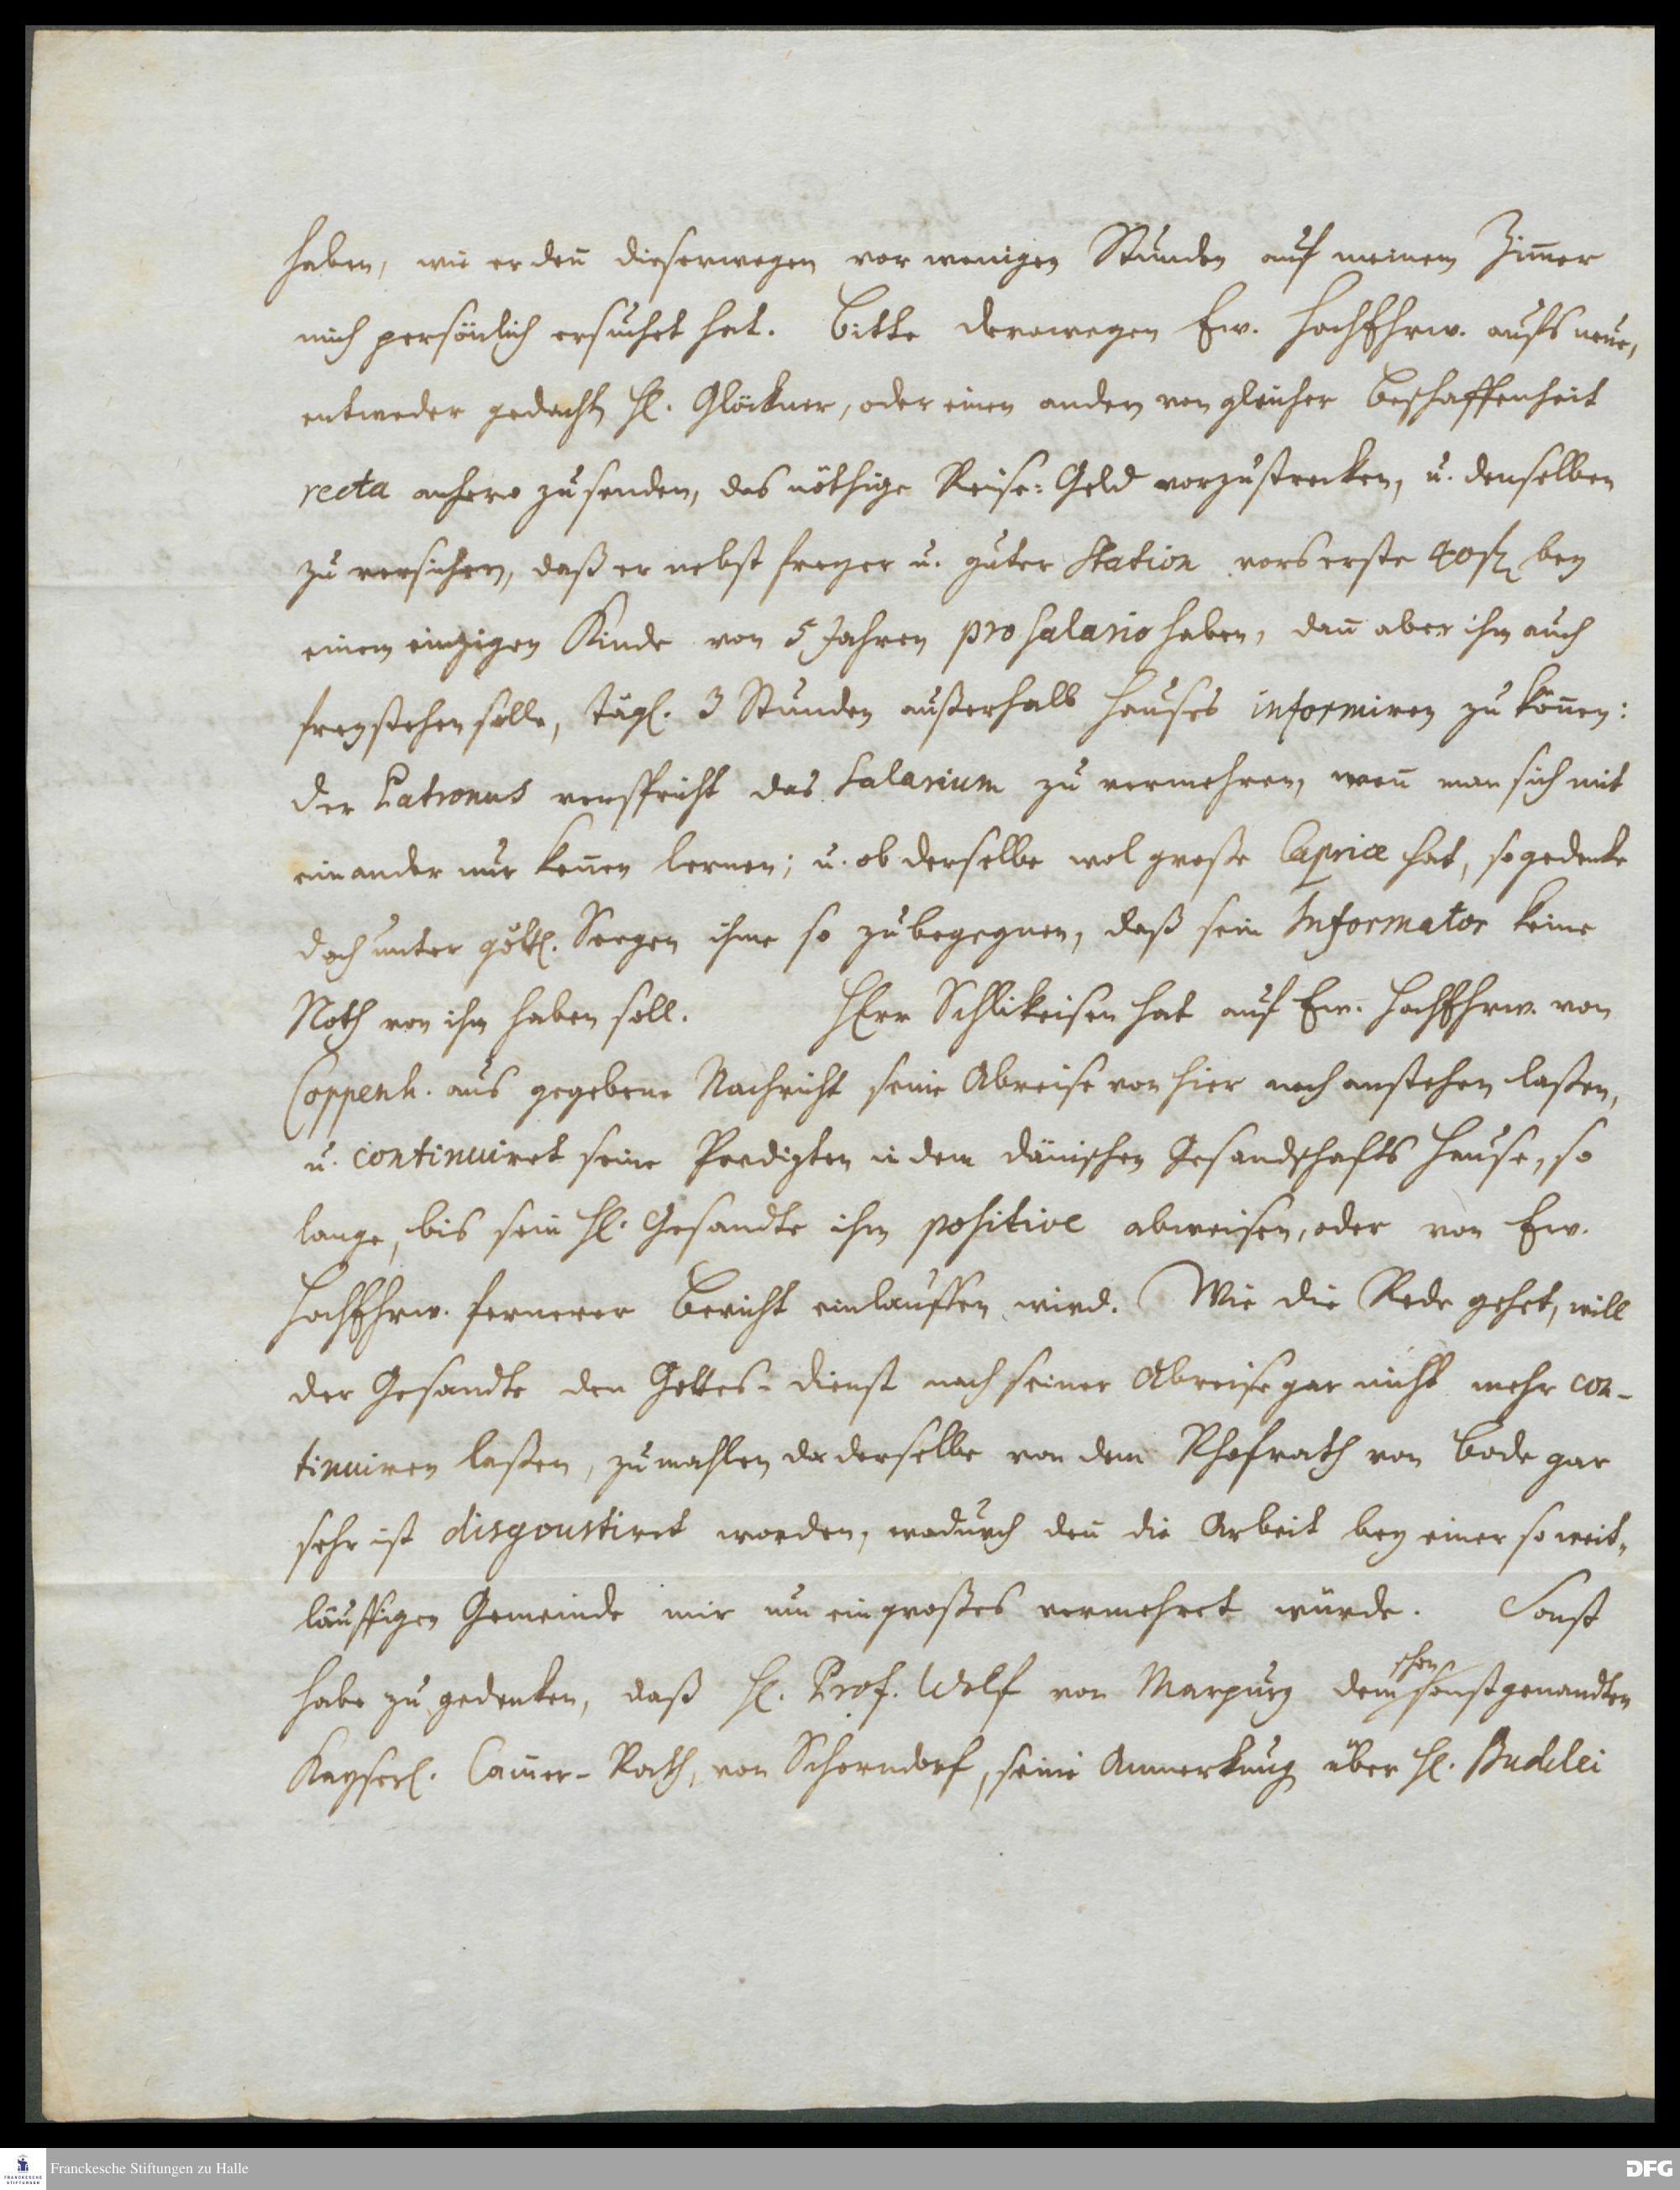 haben, wie er deñ dieserwegen vor wenigen Stunden auf meinem Zim̃er
mich persönlich ersuchet hat. Bitte derowegen Ew. HochEhrw. aufs neue,
entweder gedachtn Hl. Glöckner, oder einen andern von gleicher Beschaffenheit
recta anhero zu senden, das nöthige Reise-Geld vorzustrecken, u. denselben
zu versichern, daß er nebst freyer u. guter Station vors erste 40 bey
einem eintzigen Kinde von 5 Jahren pro Salario haben, dañ aber ihm auch
freystehen solle, tägl. 3 Stunden außerhalb Hauses informiren zu köñen:
der Patronus verspricht das Salarium zu vermehren, weñ man sich mit
einander nur keñen lernen; u. ob derselbe wol große Caprice hat, so gedencke
doch unter göttl. Seegen ihme so zu begegnen, daß sein Informator keine
Noth von ihm haben soll. HErr Schlikeisen hat auf Ew. HochEhrw. von
Coppenh. aus gegebene Nachricht seine Abreise von hier noch anstehen laßen,
u. continuiret seine Predigten in dem dänischen Gesandschafts Hause, so
lange, bis sein Hl. Gesandte ihn positive abweisen, oder von Ew.
HochEhrw. fernerer Bericht einlauffen wird. Wie die Rede gehet, will
der Gesandte den Gottes-dienst nach seiner Abreise gar nicht mehr con-
tinuiren laßen, zumahlen da derselbe von dem Rhofrath von Bode gar
sehr ist disgoustiret worden, wodurch deñ die Arbeit bey einer so weit-
läuffigen Gemeinde mir um ein großes vermehret würde. Sonst
habe zu gedencken, daß Hl. Prof. Wolf von Marpurg dem schon sonst genandten
Kayserl. Cam̃er-Rath, von Schorndorf, seine Anmerkung über Hl. Buddei